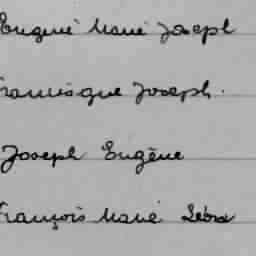 Eugene Marie Joseph
Francisque Joseph.
Joseph Eugène
François Marie